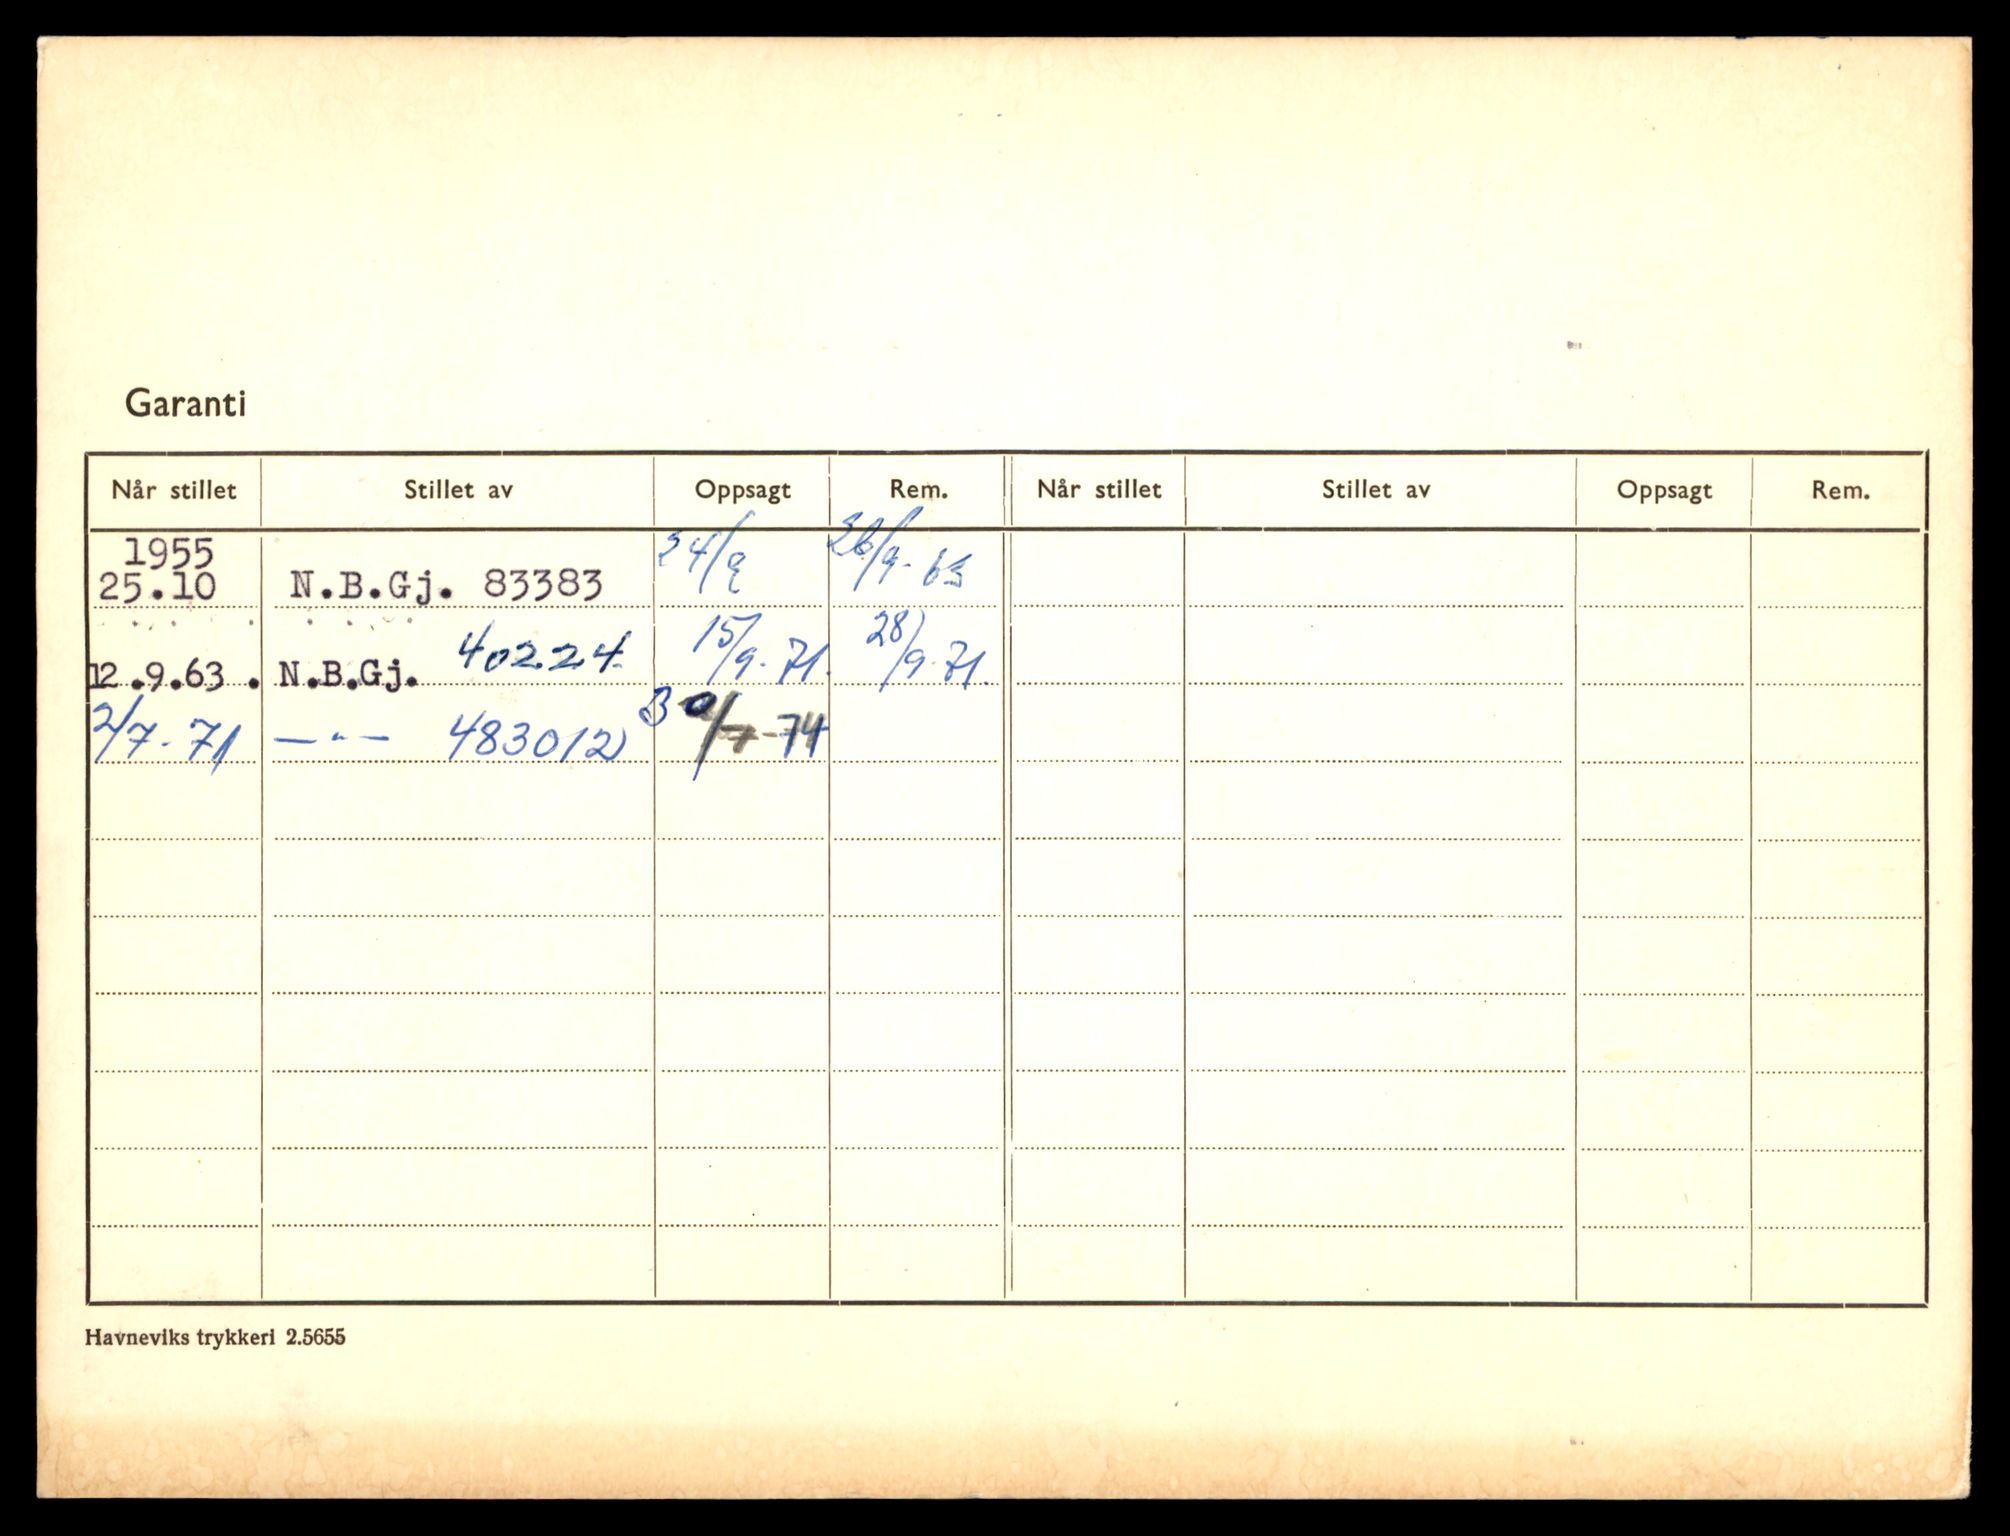 Garanti
Når stillet Stillet av Oppsagt Rem. Når stillet Stillet av Oppsagt Rem.
1955
25.10 N.B.Gj. 83383 24/9 26/9-63
12.9.63. N.B.Gj. 40224 15/9-71. 28/9-71.
2/7-71 —"— 483012 30/7-74
Havneviks trykkeri 2.5655